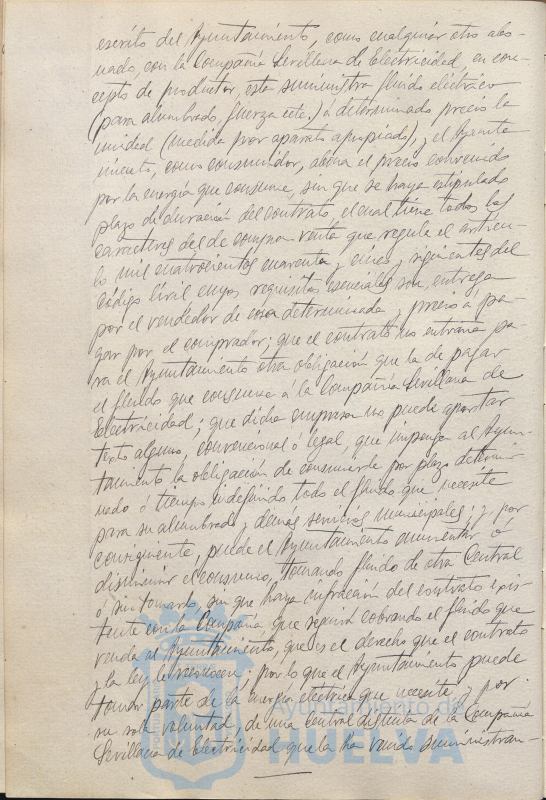 escrito del Ayuntamiento, como cualquier otro abo-
nado, con la Compañía Sevillana de Electricidad, en con-
cepto de productor, esta suministra fluido eléctrico
(para alumbrado, fuerza etc.) á determinado precio la
unidad (medida por aparato apropiado), y el Ayunta-
miento, como consumidor, abona el precio convenido
por la energía que consume, sin que se haya estipulado
plazo de duración del contrato, el cual tiene todos los
caracteres del de compra-venta que regula el artícu-
lo mil cuatrocientos cuarenta y cinco y siguientes del
Código Civil cuyos requisitos esenciales son, entrega
por el vendedor de cosa determinada y precio á pa-
gar por el comprador; que el contrato no entraña pa-
ra el Ayuntamiento otra obligación que la de pagar
el fluido que consuma á la Compañía Sevillana de
Electricidad; que dicha empresa no puede aportar
texto alguno, convencional ó legal, que imponga al Ayun-
tamiento la obligación de consumirle por plazo determi-
nado ó tiempo indefinido todo el fluido que necesite
para su alumbrado y demás servicios municipales; y por
consiguiente, puede el Ayuntamiento aumentar ó
disminuir el consumo, tomando fluido de otra Central
ó sin tomarlo, sin que haya infracción del contrato exis-
tente con la Compañía que seguirá cobrando el fluido que
venda al Ayuntamiento, que es el derecho que el contrato
y la ley le reconocen; por lo que el Ayuntamiento puede
tomar parte de la energía eléctrica que necesite y por
su sola voluntad, de una Central distinta de la Compañía
Sevillana de Electricidad que la ha venido suministran-
Ayuntamiento de
HUELVA